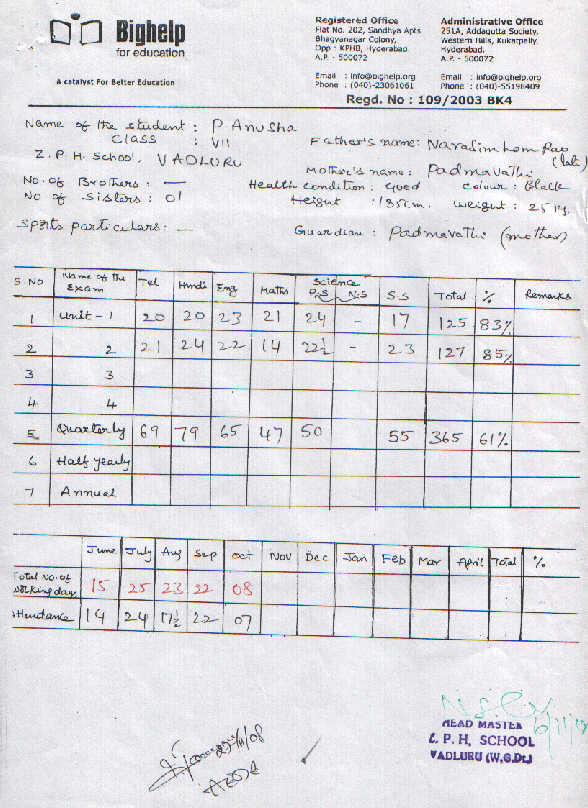 Bighelp
for education
A catalyst For Better Education
Registered Office
Flat No. 202, Sandhya Apts
Bhagyanagar Colony,
Opp : KPHB, Hyderabad.
A.P. - 500072
Email : info@bighelp.org
Phone : (040)-23061061
Administrative Office
251LA, Addagutta Society,
Western Hills, Kukatpally,
Hyderabad.
A.P. - 500072
Email : info@bighelp.org
Phone : (040)-55198409
Regd. No : 109/2003 BK4
Name of the student : P Anusha
Class : VII
Father's name: Narasimham Rao (late)
Z.P.H. School, VADLURU
Mother's name: Padmavathi
No. of Brothers : —
Health condition : good colour : Black
No of Sisters : 01
Height : 135cm. weight : 25 kg.
Sports particulars: —
Guardian : Padmavathi (mother)
S NO Name of the Exam Tel Hindi Eng Maths Science P.S N.S S.S Total % Remarks
1 Unit - 1 20 20 23 21 24 - 17 125 83%
2 2 21 24 22 14 22½ - 23 127 85%
3 3
4 4
5 Quarterly 69 79 65 47 50 55 365 61%
6 Half yearly
7 Annual
June July Aug Sep Oct Nov Dec Jan Feb Mar April Total %
Total No. of working days 15 25 23 22 08
Attendance 14 24 17½ 22 07
HEAD MASTER
Z. P. H, SCHOOL
VADLURU (W.G.Dt.)